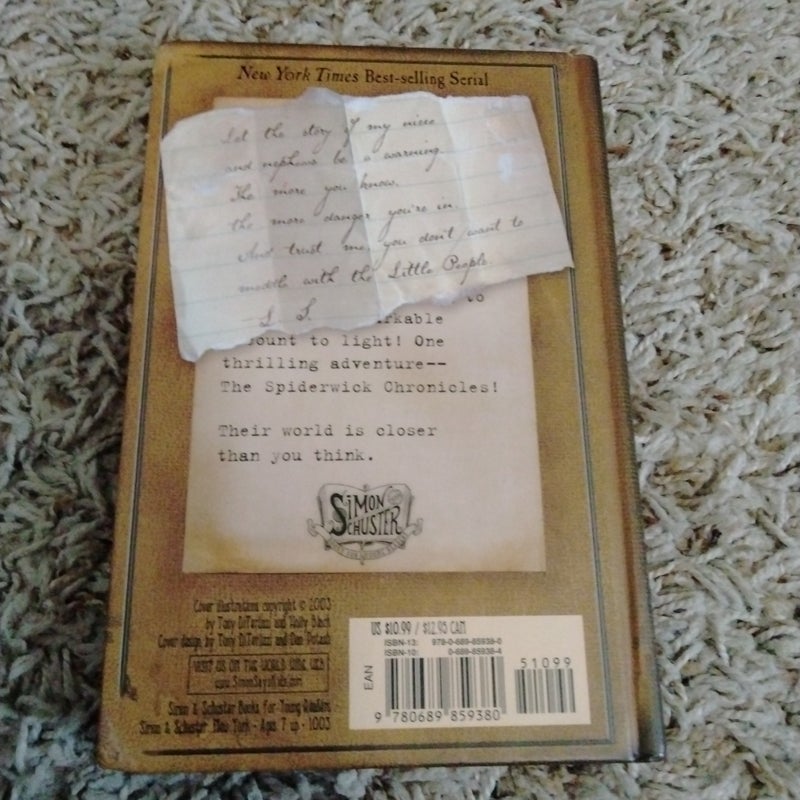 New York Times Best-selling Serial
Let the story of my niece
and nephews be a warning.
The more you know,
the more danger you're in.
And trust me, you don't want to
meddle with the Little People.
—L. S.
to
rkable
ount to light! One
thrilling adventure--
The Spiderwick Chronicles!
Their world is closer
than you think.
SIMON
SCHUSTER
Cover illustrations copyright © 2003
by Tony DiTerlizzi and Holly Black
Cover design by Tony DiTerlizzi and Dan Potash
VISIT US ON THE WORLD WIDE WEB
www.SimonSaysKids.com
Simon & Schuster Books for Young Readers
Simon & Schuster, New York · Ages 7 up · 1003
US $10.99 / $12.95 CAN
ISBN-13: 978-0-689-85938-0
ISBN-10: 0-689-85938-4
EAN
51099
9 780689 859380